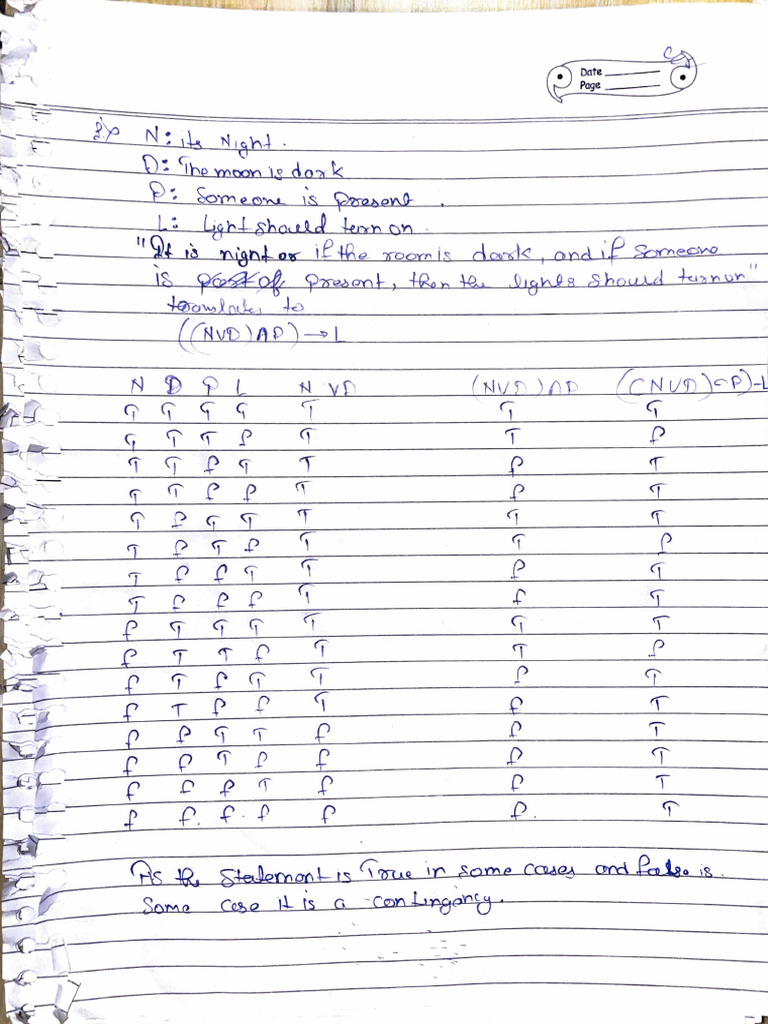 Date
Page
N: its Night.
D: The moon is dark
P: Someone is present.
L: Light should turn on.
"It is night or if the room is dark, and if someone
is present, then the lights should turn on"
translates to
((NVD)ΛP)→L
N D P L N VD (NVD)ΛP ((NVD)ΛP)→L
T T T T T T T
T T T F T T F
T T F T T F T
T T F F T F T
T F T T T T T
T F T F T T F
T F F T T F T
T F F F T f T
f T T T T T T
f T T f T T F
f T F T T F T
f T F F T f T
F F T T F F T
f F T F f F T
f f F T f F T
f f. f. f f f. T
As the Statement is True in some cases and false is.
Some case it is a contingancy.